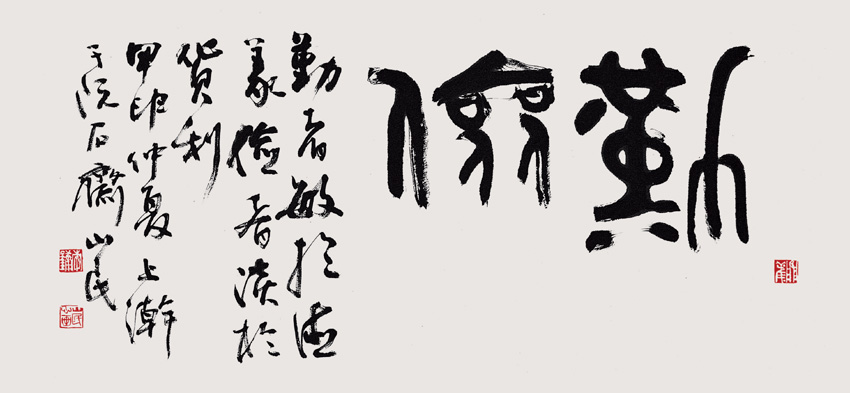 勤儉
勤者敏於德
義儉者淡於
貨利
甲申仲夏上澣
石齋山民